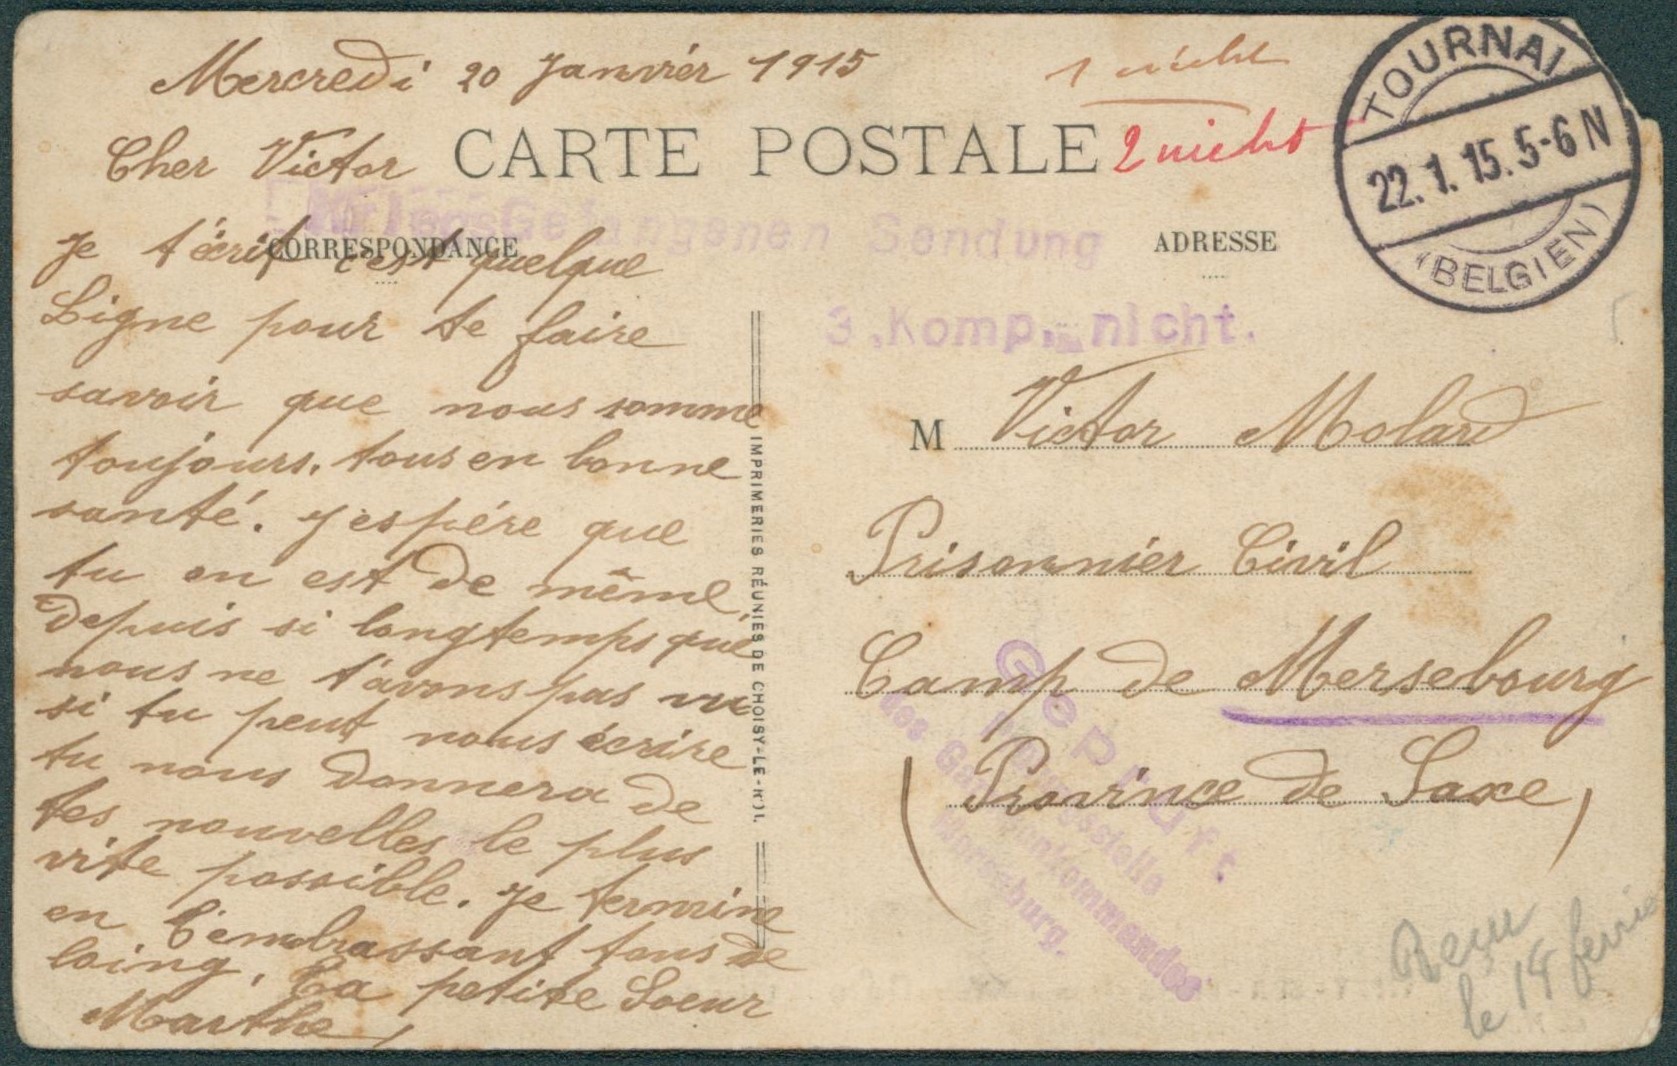 Mercredi 20 Janvier 1915
1 nicht
2 nicht
TOURNAI
22.1.15.5-6 N
(BELGIEN)
Cher Victor
CARTE POSTALE
Kriegsgefangenen Sendung
CORRESPONDANCE
ADRESSE
3.Komp. nicht.
Je t'écrit c'est quelque
Ligne pour te faire
savoir que nous somme
toujours, tous en bonne
santé. J'espére que
tu en est de même,
depuis si longtemps que
nous ne t'avons pas vu
si tu peut nous écrire
tu nous donnera de
tes nouvelles le plus
vite possible. Je termine
en t'embrassant tous de
loing, Ta petite Soeur
Marthe,
IMPRIMERIES RÉUNIES DE CHOISY-LE-R)I.
M Victor Molard
Prisonnier Civil
Camp de Mersebourg
(Province de Saxe)
Geprüft
des Gefangenenkommandos
Merseburg.
Reçu
le 14 fevrie